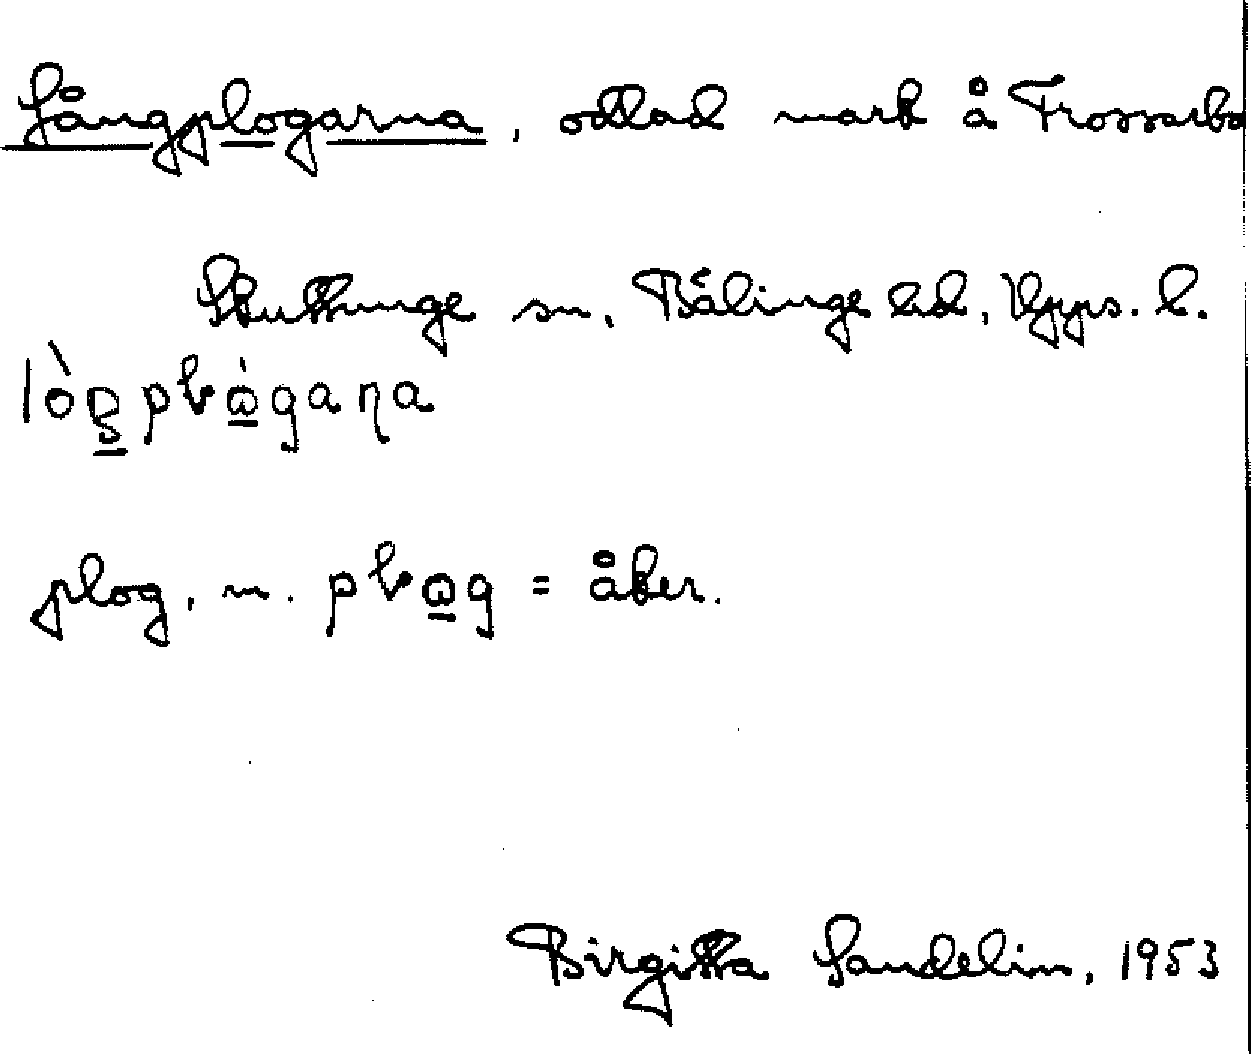 Långplogarna, odlad mark å Trossarbo
Skuttunge sn, Bälinge hd, Upps. l.
plog, m. = åker.
Birgitta Sandelin, 1953